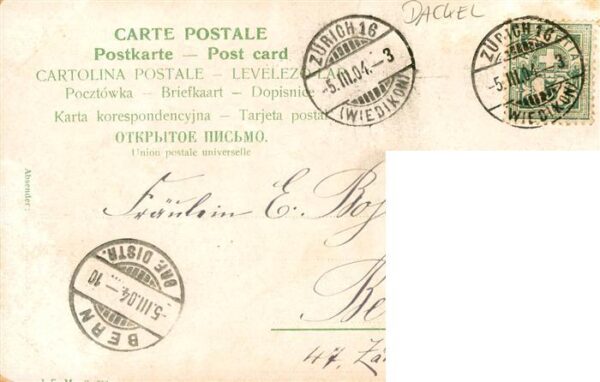 DACKEL
CARTE POSTALE
Postkarte — Post card
CARTOLINA POSTALE — LEVELEZŐ-LAP
Pocztówka — Briefkaart — Dopisnice
Karta korespondencyjna — Tarjeta postal
ОТКРЫТОЕ ПИСЬМО.
Union postale universelle
ZÜRICH 16
-5.III.04.—3
(WIEDIKON)
ZÜRICH 16
-5.III.04.—3
(WIEDIKON)
Absender:
Fräulein E.
BERN
-5.III.04.—10
BRF. DISTR.
47.